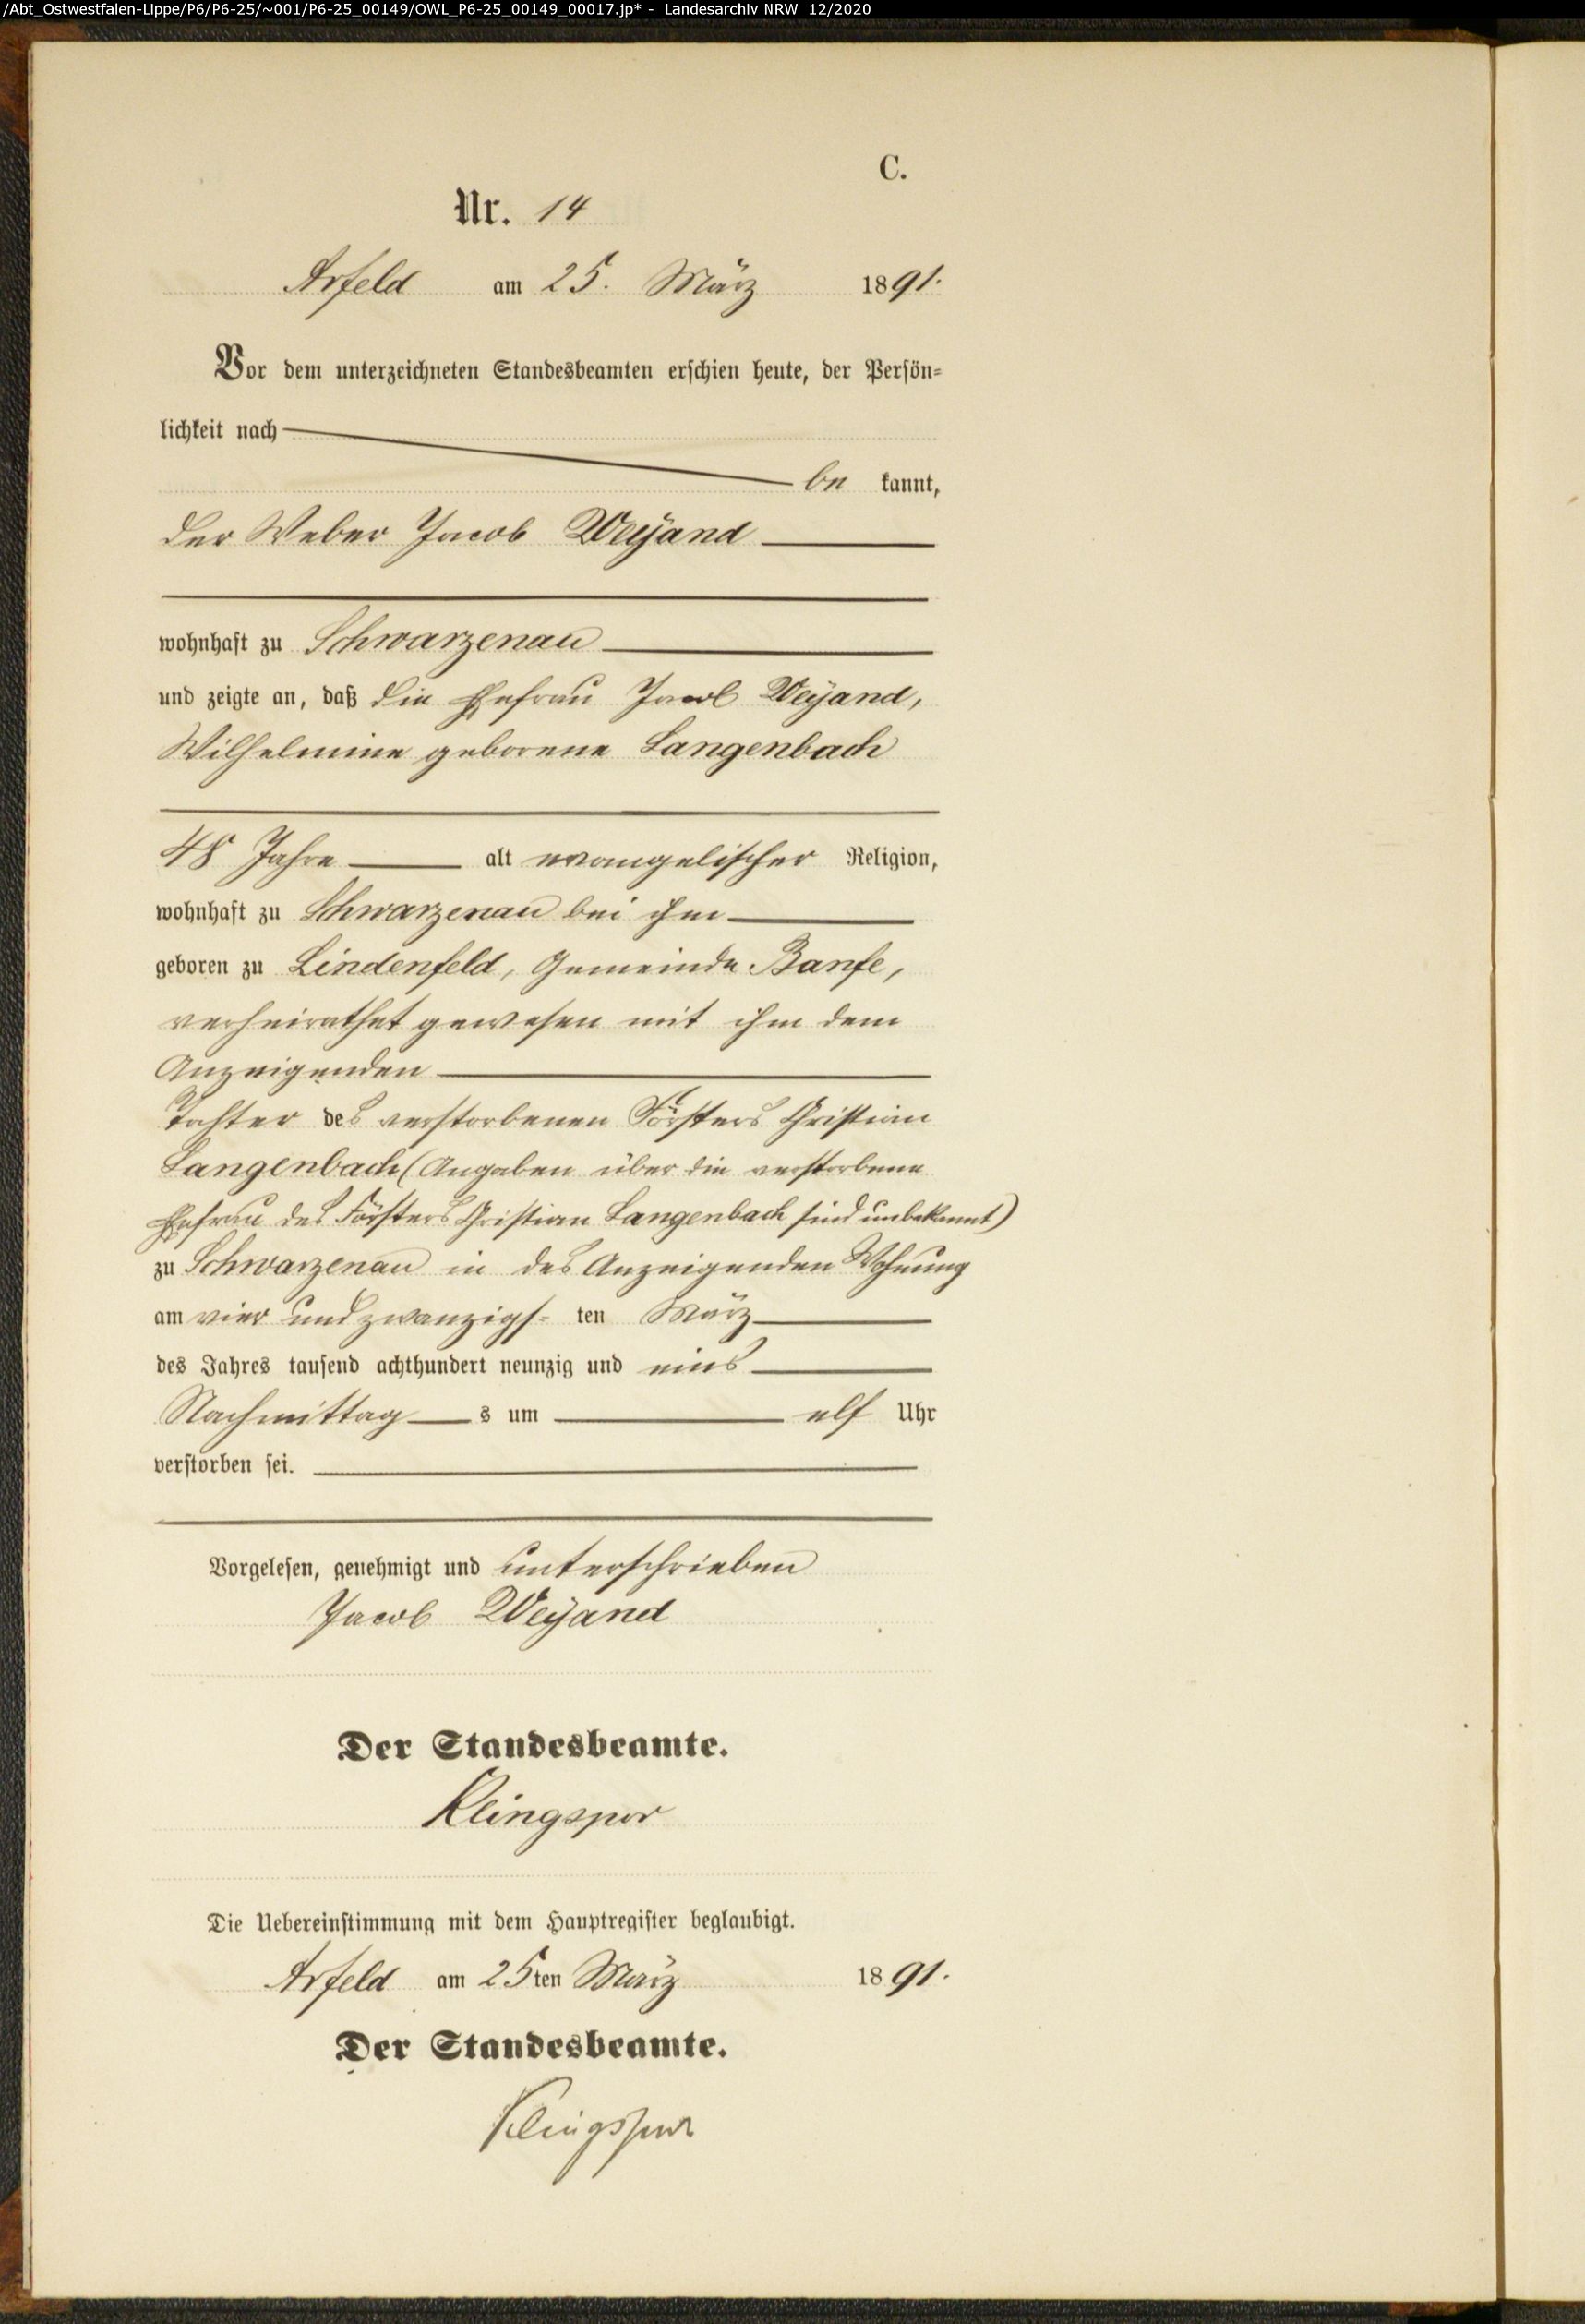 /Abt_Ostwestfalen-Lippe/P6/P6-25/~001/P6-25_00149/OWL_P6-25_00149_00017.jp* - Landesarchiv NRW 12/2020
C.
Nr. 14
Arfeld am 25. März 1891.
Vor dem unterzeichneten Standesbeamten erschien heute, der Persön-
lichkeit nach
be kannt,
der Weber Jacob Weÿand
wohnhaft zu Schwarzenau
und zeigte an, daß die Ehefrau Jacob Weÿand,
Wilhelmine geborene Langenbach
48 Jahre alt evangelischer Religion,
wohnhaft zu Schwarzenau bei ihm
geboren zu Lindenfeld, Gemeinde Banfe,
verheirathet gewesen mit ihm dem
Anzeigenden
Tochter des verstorbenen Försters Christian
Langenbach (Angaben über die verstorbene
Ehefrau des Försters Christian Langenbach sind unbekannt)
zu Schwarzenau in des Anzeigenden Wohnung
am vier und zwanzigs- ten März
des Jahres tausend achthundert neunzig und eins
Nachmittag s um elf Uhr
verstorben sei.
Vorgelesen, genehmigt und unterschrieben
Jacob Weÿand
Der Standesbeamte.
Klingspor
Die Uebereinstimmung mit dem Hauptregister beglaubigt.
Arfeld am 25ten März 1891.
Der Standesbeamte.
Klingspor